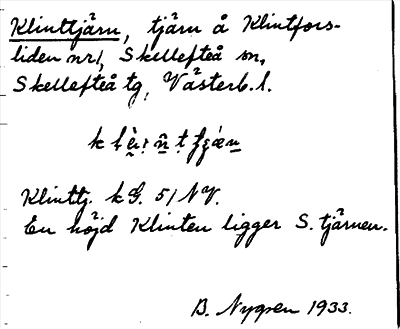 Klinttjärn, tjärn å Klintfors-
liden nr 1, Skellefteå sn,
Skellefteå tg, Västerb. l.
Klinttj. kG. 51 NV.
En höjd Klinten ligger S. tjärnen.
B. Nygren 1933.